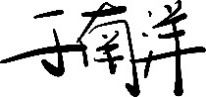 于南洋